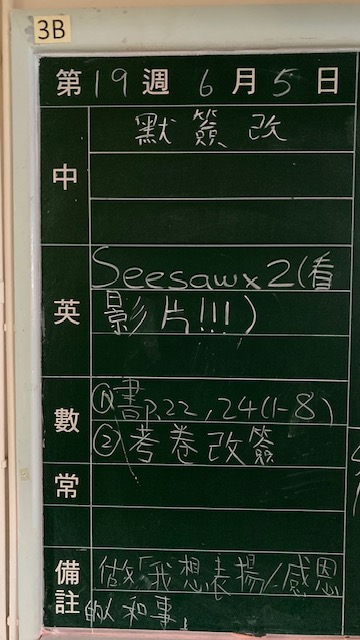 3B
第19週6月5日
中 默簽改
英 Seesaw x 2 (看
影片!!!)
數 ①書P.22, 24(1-8)
②考卷改簽
常
備註 做「我想表揚/感恩
的人和事」